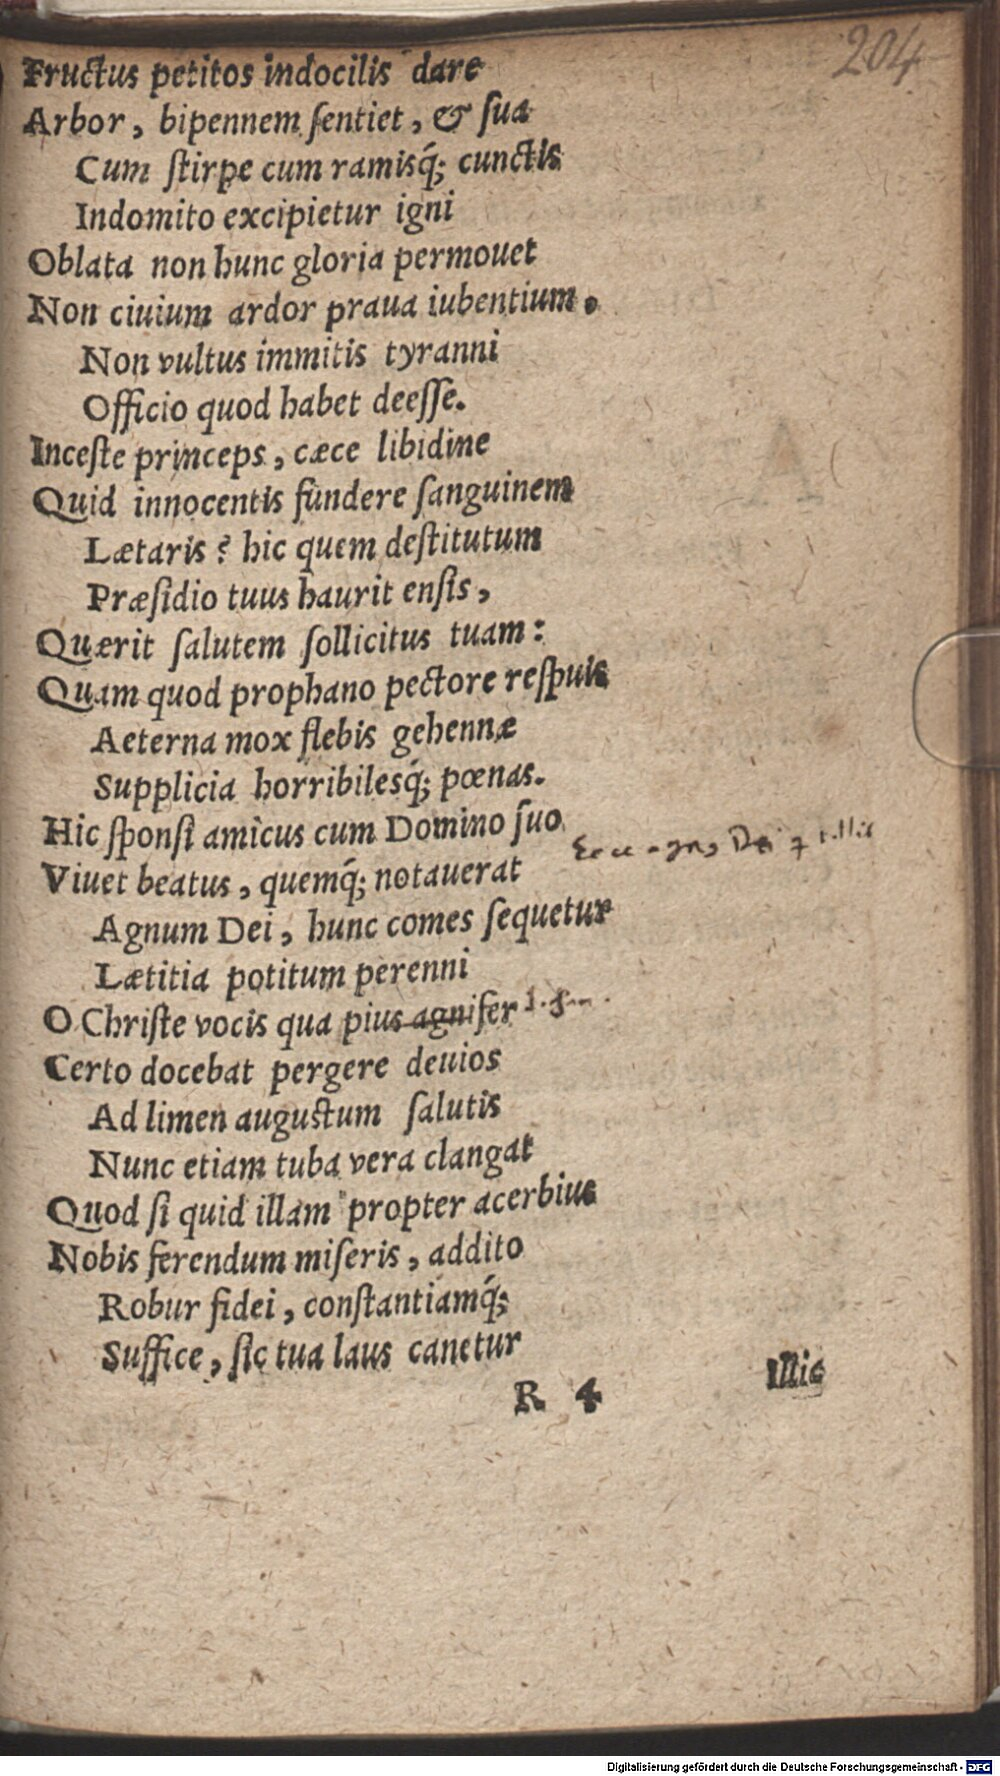 204
Fructus petitos indocilis dare
Arbor, bipennem ſentiet, & ſua
Cum ſtirpe cum ramisq́; cunctis
Indomito excipietur igni
Oblata non hunc gloria permouet
Non ciuium ardor praua iubentium.
Non vultus immitis tyranni
Officio quod habet deeſſe.
Inceſte princeps, cæce libidine
Quid innocentis fundere ſanguinem
Lætaris? hic quem deſtitutum
Præſidio tuus haurit enſis,
Quærit ſalutem ſollicitus tuam:
Quam quod prophano pectore reſpuis
Aeterna mox flebis gehennæ
Supplicia horribilesq́; pœnas.
Hic ſponſi amicus cum Domino ſuo
Viuet beatus, quemq́; notauerat
Agnum Dei, hunc comes ſequetur
Lætitia potitum perenni
O Chriſte vocis qua pius agnifer
Certo docebat pergere deuios
Ad limen auguſtum ſalutis
Nunc etiam tuba vera clangat
Quod ſi quid illam propter acerbius
Nobis ferendum miſeris, addito
Robur fidei, conſtantiamq́;
Suffice, ſic tua laus canetur
R 4
Illic
Digitalisierung gefördert durch die Deutsche Forschungsgemeinschaft - DFG